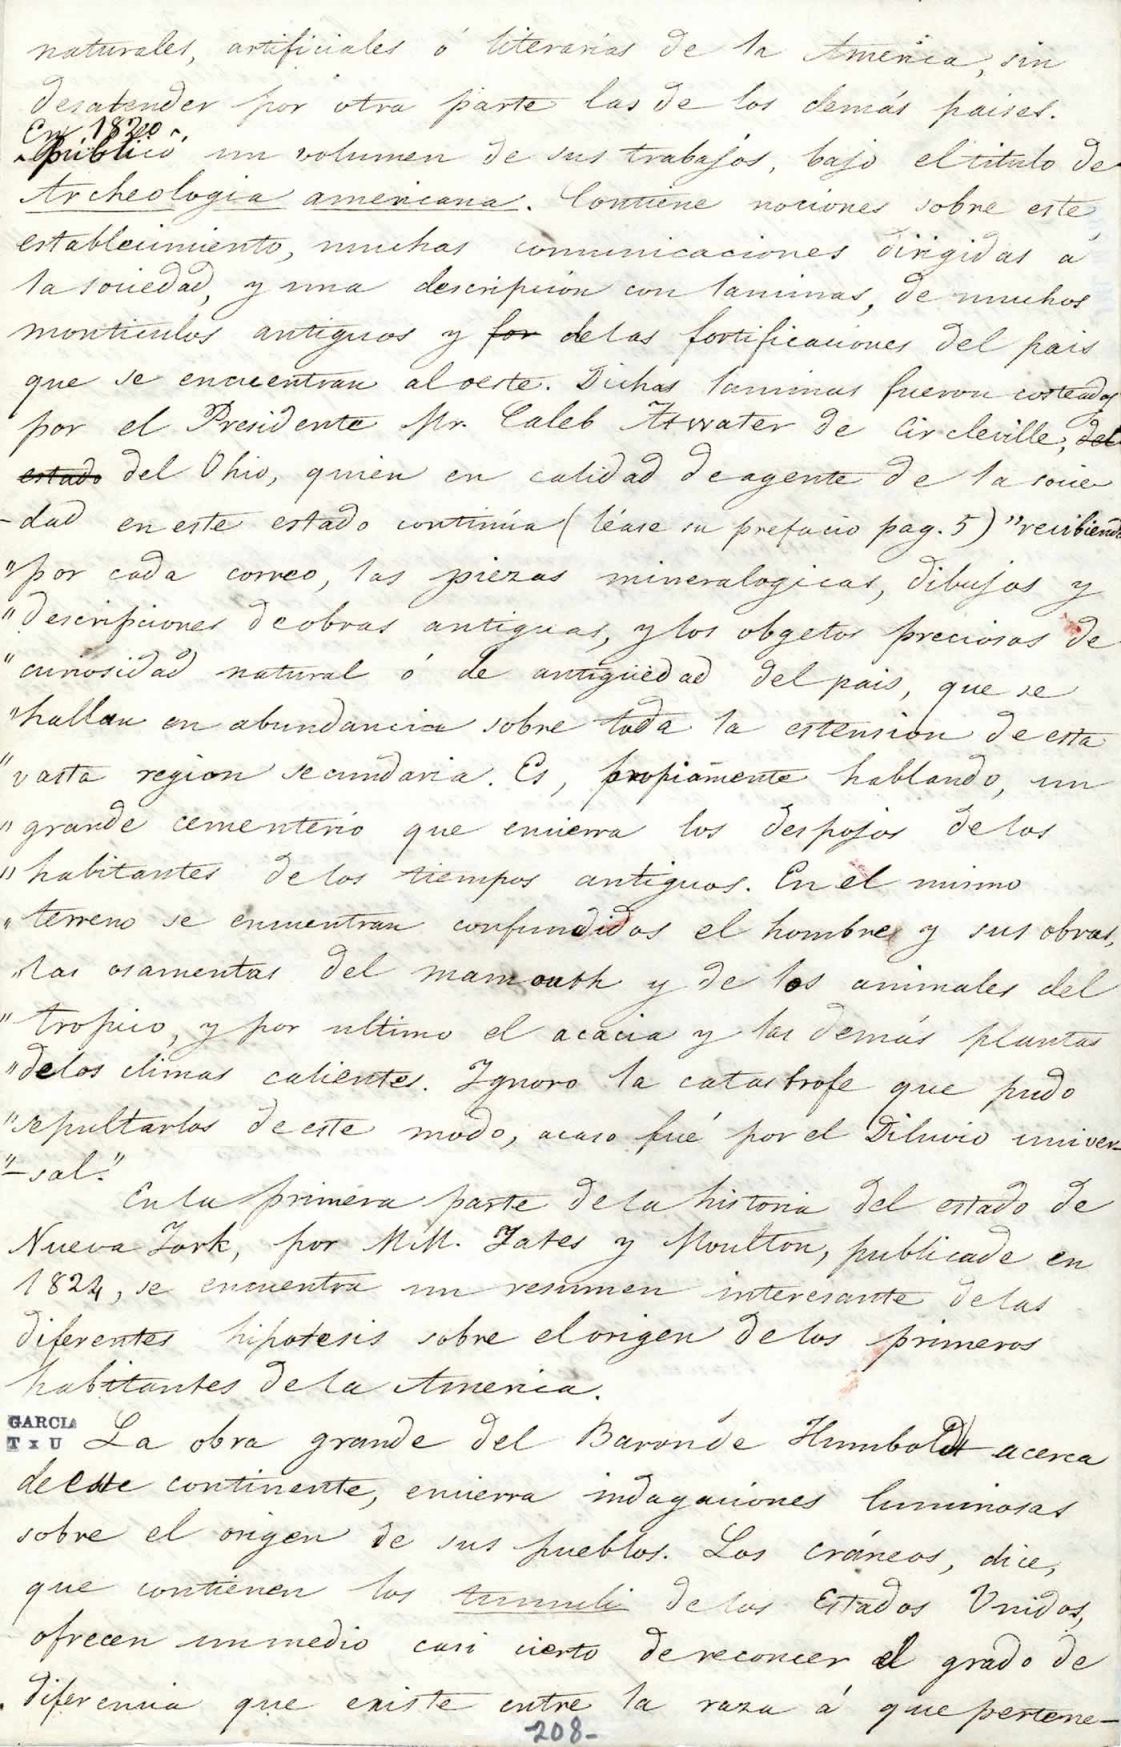 naturales, artificiales ó literarias de la America, sin
desatender por otra parte las de los demás paises.
En 1820
publicó un volumen de sus trabajos, bajo el titulo de
Archeologia americana. Contiene nociones sobre este
establecimiento, muchas comunicaciones dirigidas á
la sociedad, y una descripcion con laminas, de muchos
monticulos antiguos y for de las fortificaciones del pais
que se encuentran al oeste. Dichas laminas fueron costeadas
por el Presidente Mr. Caleb Atwater de Circleville, del
estado del Ohio, quien en calidad de agente de la socie-
-dad en este estado continúa (léase su prefacio pag. 5) "recibiendo
"por cada correo, las piezas mineralogicas, dibujos y
"descripciones de obras antiguas, y los obgetos preciosos de
"curiosidad natural ó de antigüedad del pais, que se
"hallan en abundancia sobre toda la estension de esta
"vasta region secundaria. Es, propiamente hablando, un
"grande cementerio que encierra los despojos de los
"habitantes de los tiempos antiguos. En el mismo
"terreno se encuentran confundidos el hombre y sus obras,
"las osamentas del mamouth y de los animales del
"tropico, y por ultimo el acacia y las demás plantas
"de los climas calientes. Ignoro la catastrofe que pudo
"sepultarlos de este modo, acaso fué por el Diluvio univer-
"-sal."
En la primera parte de la historia del estado de
Nueva York, por M.M. Yates y Moulton, publicade en
1824, se encuentra un resumen interesante de las
diferentes hipotesis sobre el origen de los primeros
habitantes de la America.
GARCIA
T x U
La obra grande del Baron de Humboldt acerca
de este continente, encierra indagaciones luminosas
sobre el origen de sus pueblos. Los cráneos, dice,
que contienen los tumuli de los Estados Unidos,
ofrecen un medio casi cierto de reconcer el grado de
diferencia que existe entre la raza á que pertene-
208-